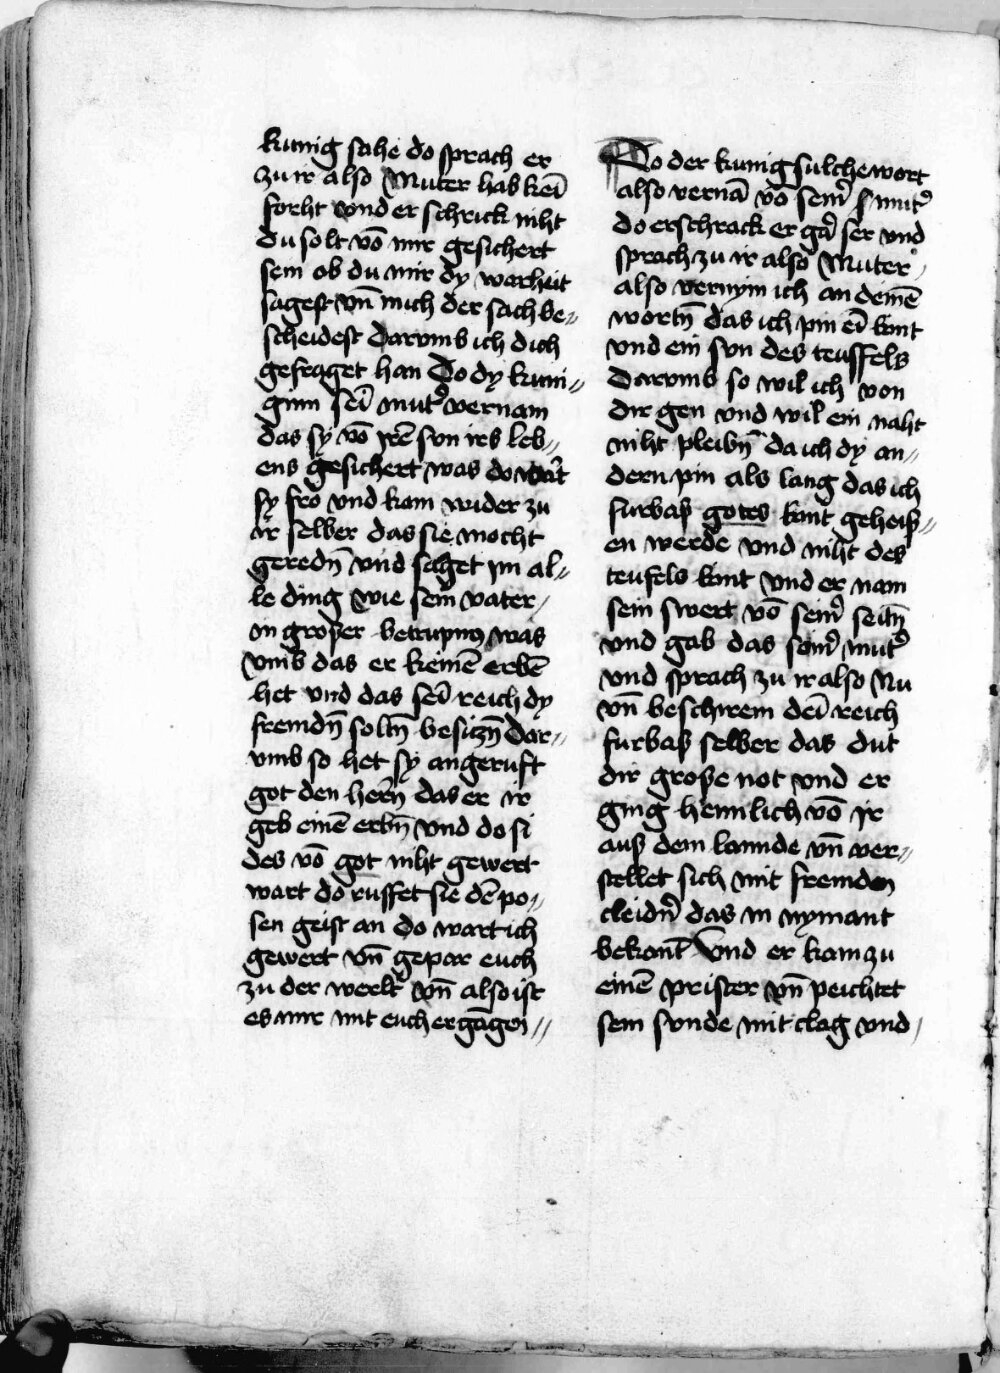 kunig sahe do sprach er
zu ir also Muter hab kei͂
forht vnd er schrick niht
du solt vo͂ mir gesichert
sein ob du mir dy warheit
sagest vn͂ mich der sach be⸗
scheidest Darvmb ich dich
gefraget han Do dy kuni⸗
ginn sei͂ mut᷑ vernam
das sy vo͂ ire͂ svn irs leb⸗
ens gesichert was do wart
sy fro vnd kam wider zu
ir selber das sie mocht
geredn͂ vnd saget im al⸗
le ding wie sein vater
in großer betrupnuß was
vmb das er keine͂ erbe͂
het vnd das sei͂ reich dy
fremdn͂ soltn͂ besiczn͂ Dar⸗
vmb so het sy angeruft
got den hern͂ das er ir
geb eine͂ erbn͂ vnd do si
des vo͂ got niht gewert
wart do ruffet sie de͂ po⸗
sen geist an Do wart ich
gewert vn͂ gepar euch
zu der werlt vn͂ also ist
es mir mit euch erga͂gen
Do der kunig sulche wort
also verna͂ vo͂ sein᷑ mut᷑
do erschrack er gar ser vnd
sprach zu ir also Muter
also vernym ich an deine͂
wortn͂ das ich pin ei͂ kint
vnd ein svn des teuffels
Darvmb so wil ich von
dir gen vnd wil ein naht
niht pleibn͂ da ich dy an⸗
dern pin als lang das ich
furbaß gotes kint geheiß⸗
en werde vnd niht des
teufels kint vnd er nam
sein swert vo͂ sein᷑ seitn͂
vnd gab das sein᷑ mut᷑
vnd sprach zu ir also Nu
vn͂ beschirem dei͂ reich
furbaß selber das dut
dir große not vnd er
ging heimlich vo͂ ir
auß dem lannde vn͂ ver⸗
stellet sich mit fremden
cleidn͂ das in nymant
bekant Vnd er kam zu
eine͂ prister vn͂ peichtet
sein sunde mit clag vnd